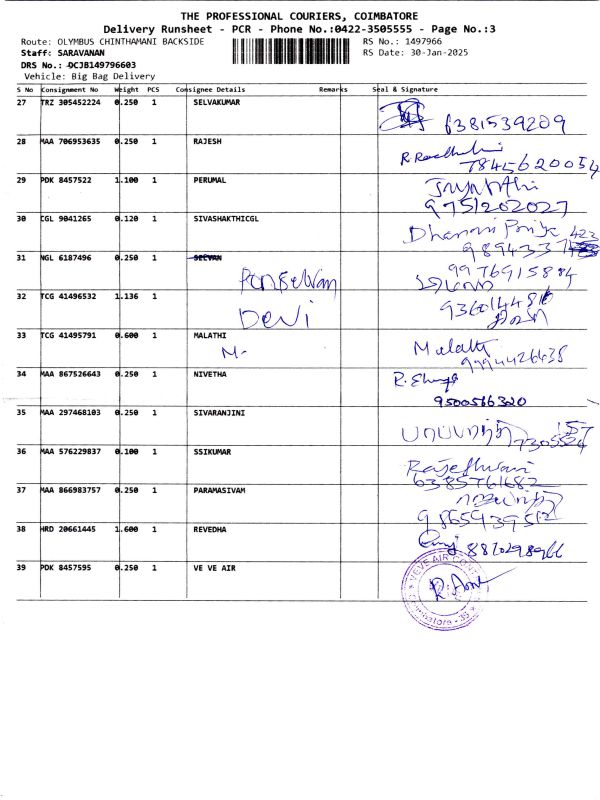 THE PROFESSIONAL COURIERS, COIMBATORE
Delivery Runsheet - PCR - Phone No.:0422-3505555 - Page No.:3
Route: OLYMBUS CHINTHAMANI BACKSIDE RS No.: 1497966
Staff: SARAVANAN RS Date: 30-Jan-2025
DRS No.: DCJB149796603
Vehicle: Big Bag Delivery
S No Consignment No Weight PCS Consignee Details Remarks Seal & Signature
27 TRZ 305452224 0.250 1 SELVAKUMAR
6381539209
28 MAA 706953635 0.250 1 RAJESH
7845620054
29 PDK 8457522 1.100 1 PERUMAL
9751202027
30 CGL 9041265 0.120 1 SIVASHAKTHICGL Dharani Priya
31 NGL 6187496 0.250 1 SELVAN
Ponselvan 9976915884
32 TCG 41496532 1.136 1
Devi
33 TCG 41495791 0.600 1 MALATHI
M- Malathi
9994426435
34 MAA 867526643 0.250 1 NIVETHA
9500566320
35 MAA 297468103 0.250 1 SIVARANJINI
36 MAA 576229837 0.100 1 SSIKUMAR
6385761682
37 MAA 866983757 0.250 1 PARAMASIVAM
38 HRD 20661445 1.600 1 REVEDHA
39 PDK 8457595 0.250 1 VE VE AIR